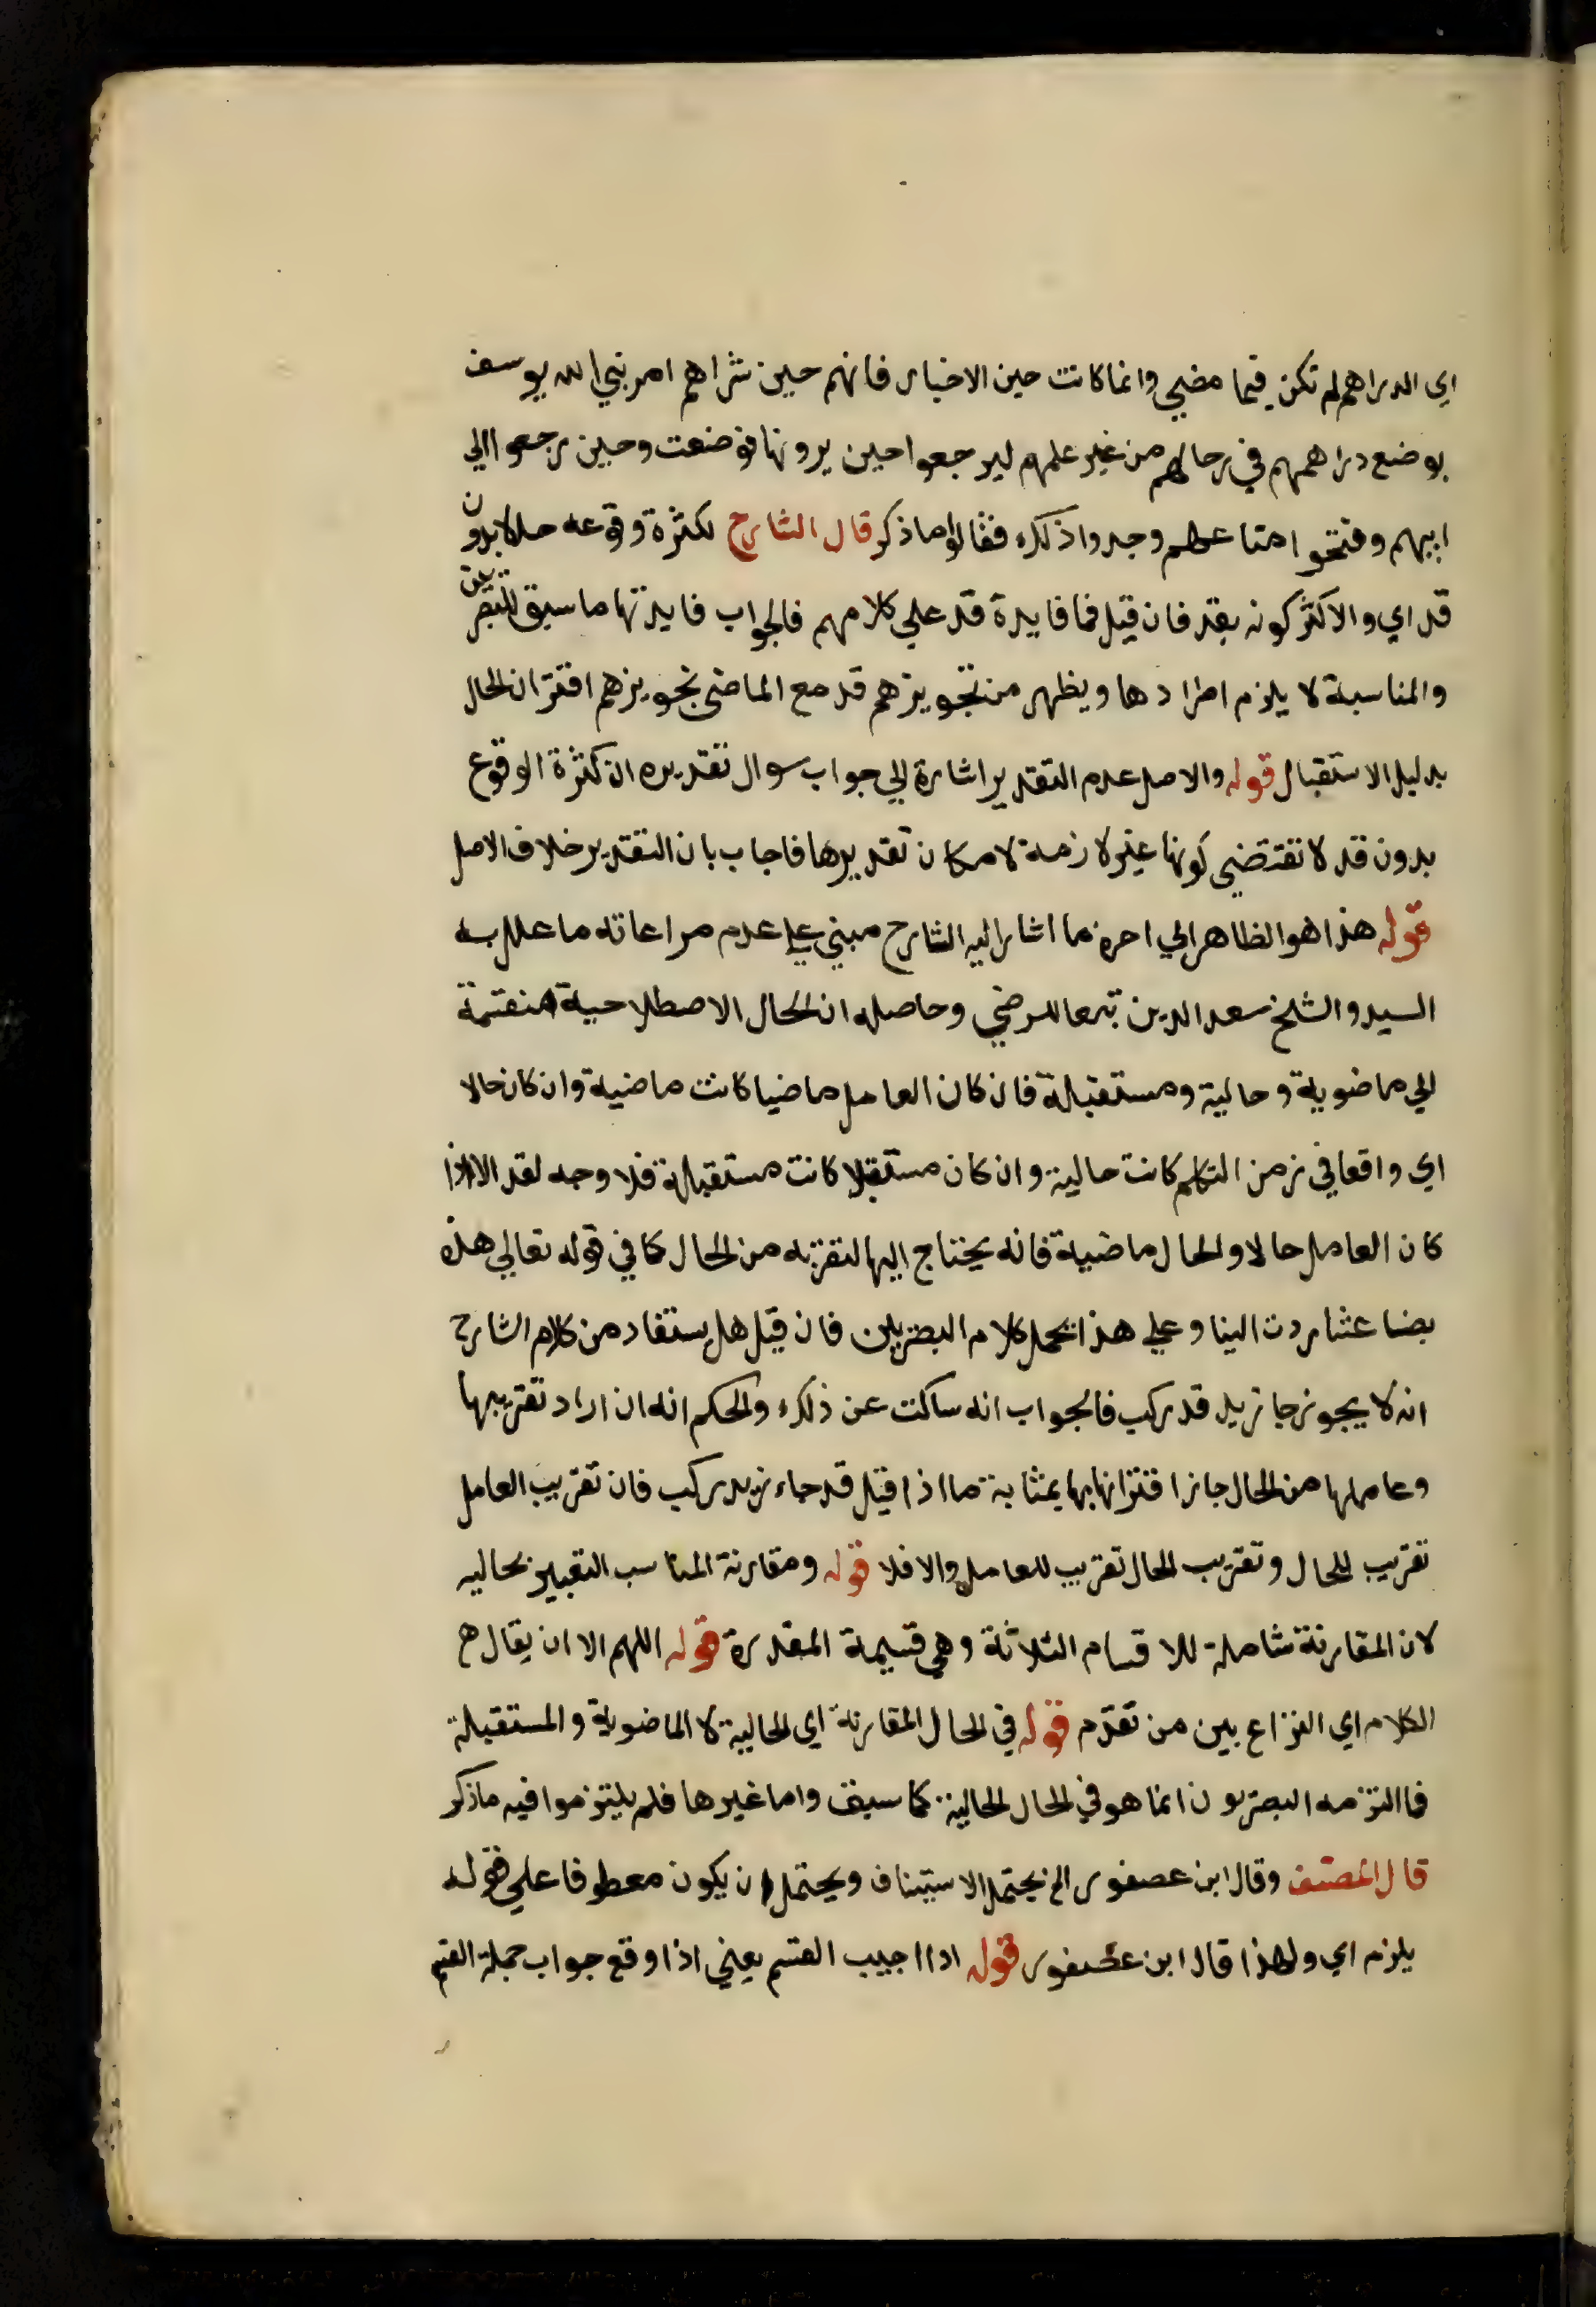 اي الدراهم لم تكن فيما مضي وانما كانت حين الاخبار فانهم حين شراهم امر نبي الله يوسف
بوضع دراهمهم في رحالهم من غير علمهم ليرجعوا حين يرونها فوضعت وحين رجعوا الي
ابيهم وفتحوا متاعهم وجدوا ذلك فقالوا ما ذكر قال الشارح لكثرة وقوعه حالا بدون
قد اي والاكثر كونه بقد فان قيل فما فايدة قد علي كلامهم فالجواب فايدتها ما سبق للتقريب
والمناسبة لا يلزم اطرادها ويظهر من تجويزهم قد مع الماضي تجويزهم اقتران الحال
بدليل الاستقبال قوله والاصل عدم التقدير اشارة الي جواب سوال تقديره ان كثرة الوقوع
بدون قد لا تقتضي كونها غير لازمة لامكان تقديرها فاجاب بان التقدير خلاف الاصل
قوله هذا هو الظاهر الي اخره ما اشار اليه الشارح مبني علي عدم مراعاته ما علل به
السيد والشيخ سعد الدين تبعا للرضي وحاصله ان الحال الاصطلاحية منقسمة
الي ماضوية وحالية ومستقبلة فان كان العامل ماضيا كانت ماضية وان كان حالا
اي واقعا في زمن التكلم كانت حالية وان كان مستقبلا كانت مستقبلة فلا وجه لقد الا اذا
كان العامل حالا والحال ماضية فانه يحتاج اليها لتقربه من الحال كما في قوله تعالي هذه
بضاعتنا ردت الينا وعلي هذا يحمل كلام البصريين فان قيل هل يستفاد من كلام الشارح
انه لا يجوز جا زيد قد ركب فالجواب انه ساكت عن ذلك والحكم انه ان اراد تقريبها
وعاملها من الحال جاز اقترانها بها بمثابة ما اذا قيل قد جاء زيد ركب فان تقريب العامل
تقريب للحال وتقريب الحال تقريب للعامل والا فلا قوله ومقارنة المناسب التعبير بحاليه
لان المقارنة شاملة للاقسام الثلاثة وهي قسيمة المقدرة قوله اللهم الا ان يقال ح
الكلام اي النزاع بين من تقدم قوله في الحال المقارنة اي الحالية لا الماضوية والمستقبلة
فما التزمه البصريون انما هو في الحال الحالية كما سبق واما غيرها فلم يلتزموا فيه ما ذكر
قال المصنف وقال ابن عصفور الخ يحتمل الاستيناف ويحتمل ان يكون معطوفا علي قوله
يلزم اي ولهذا قال ابن عصفور قوله اذا اجيب القسم يعني اذا وقع جواب جملة القسم